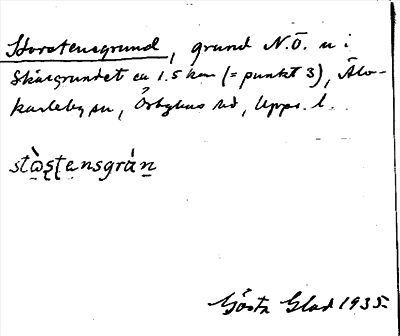 Storstensgrund, grund N.Ö. u i
Skärgrundet ca 1.5 km (= punkt 3), Älv-
karleby sn, Örbyhus hd, Upps. l.
stɷ̀ʂʈensgrán
Gösta Glad 1935